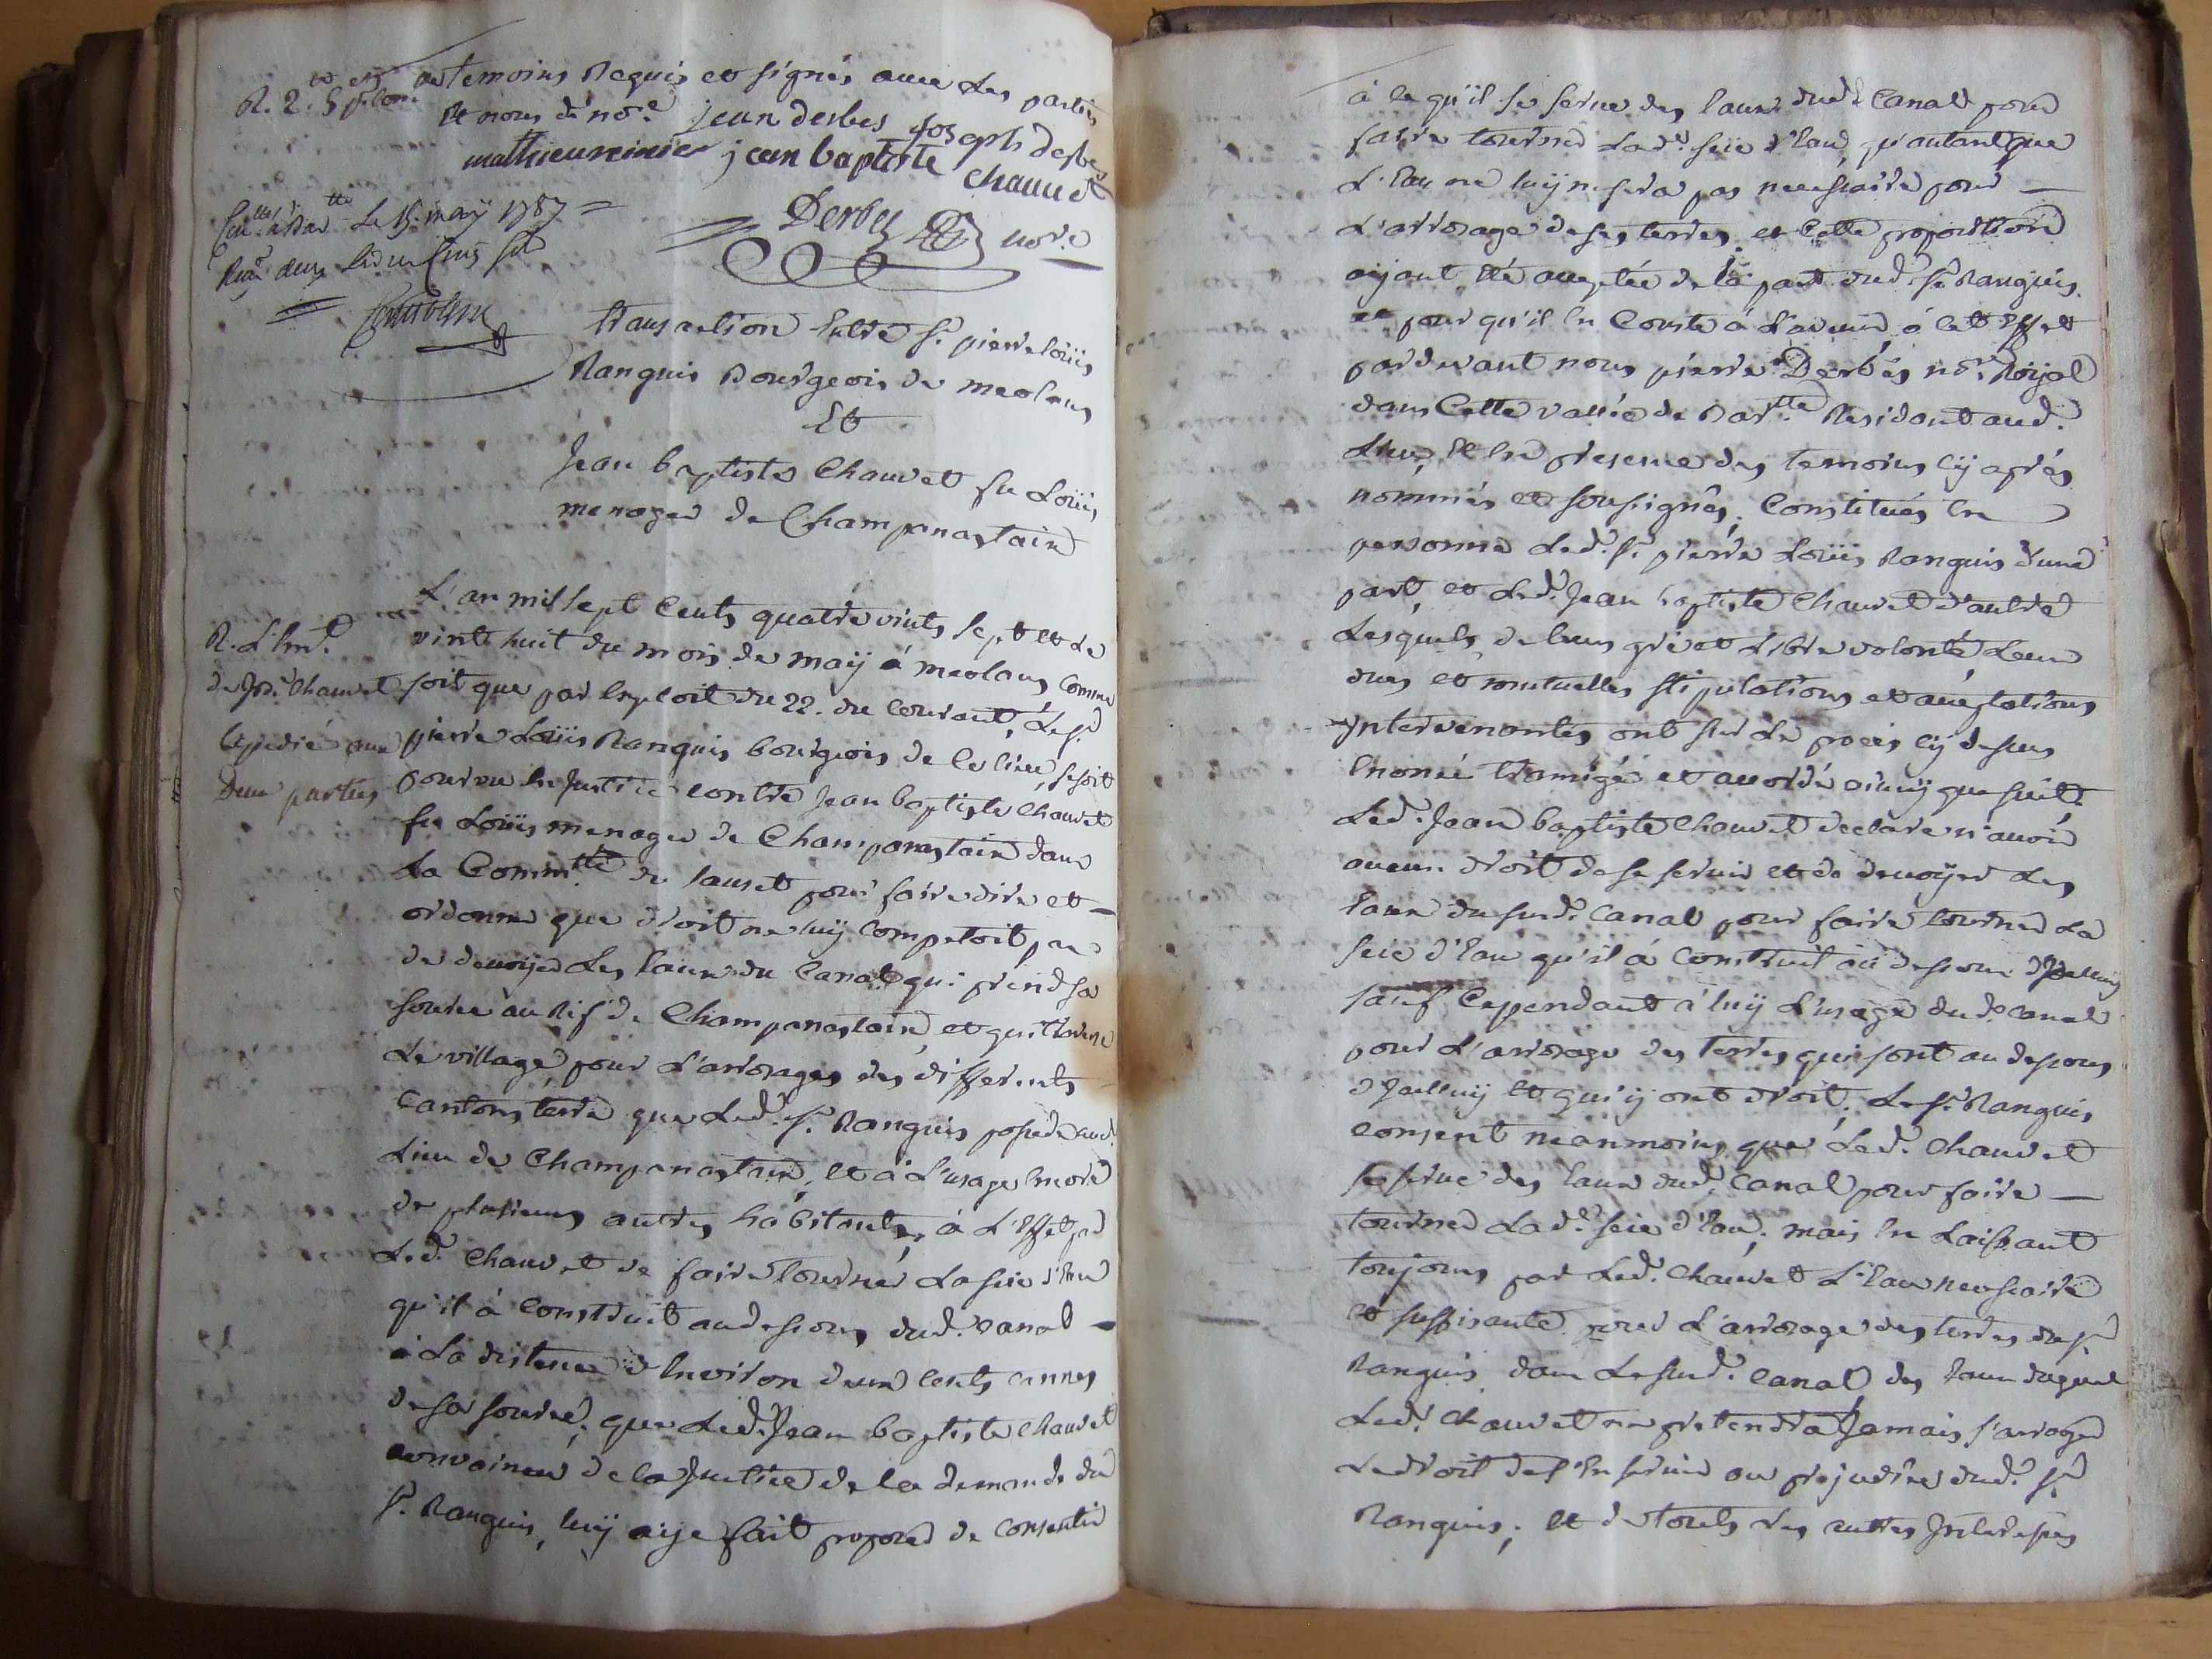 temoins Requis et signés avec Les parties
Et nous d. no.e jean derbes joseph derbes
mathieu reinier jean baptiste chauvet
Derbes no.re
Le 15. may 1787 =
Transaction Entre Sr. pierre Loüis
Ranguis Bourgeois de meolans
Et
Jean baptiste Chauvet fu Loüis
menager de Champanastain
L'an mil sept Cents quatre vints sept et Le
vint huit du mois de maÿ á meolans Comme
soit que par Exploit du 22. du Courant, Le sr.
pierre Loüis Ranguis bourgeois de Ce lieu, se soit
pourvu En Justice contre Jean baptiste Chauvet
fu Loüis menager de Champanastain dans
La Comm.té du Lauset pour faire dire et
ordonner que droit ne luÿ Competoit pas
de devoÿer Les Eaux du Canal qui prend sa
source au Rif de Champanastain, et qui traverse
Le village, pour L'arrosage des differents
Cantons terre que Led. sr. Ranguis possede aud.
Lieu de Champanastain, et á L'usage Encore
de plusieurs autres habitants, à L'Effet par
Led. Chauvet de faire tourner La sie d'Eau
qu'il à Construit audessous dud. Canal
à La distance d'Environ deux Cents cannes
de sa source; que Led. Jean baptiste Chauvet
convaincu de la Justice de la demande du
sr. Ranguis, luÿ aÿe fait proposer de Consentir
R. L'Im.d
de Jn. Chauvet
Expedié aux
Deux parties
à ce qu'il se serve des Eaux dud. Canal pour
faire tourner Lad. seie d'Eau, qu'autant que
L'Eau ne luÿ sera pas necessaire pour
L'arrosage de ses terres, et Cette proposition
aÿant Eté acceptée de la part dud. sr. Ranguis
et pour qu'il En Conste á L'avenir, á Cet Effet
pardevant nous pierre Derbés no.re Roÿal
dans Cette vallée de Bar.tte Residant aud.
Lieu, Et En presence des temoins cÿ aprés
nommés et soussignés, Constitués En
personne Led. sr. pierre Loüis Ranguis d'une
part, et Led. Jean baptiste Chauvet d'autre
Lesquels de leur gré et Libre volonté Leurs
dues et mutuelles stipulations et acceptations
Intervenantes ont sur Le procés cÿ dessus
Enoncé transigé et accordé ainsÿ que suit
Led. Jean baptiste Chauvet declare n'avoir
aucun droit de se servir et de devoÿer Les
Eaux du sud. Canal pour faire tourner La
seie d'Eau qu'il á Construit au dessous d'Jcelluÿ
sauf Cependant á luÿ L'usage du d. Canal
pour L'arrosage des terres qui sont au dessous
d'Jcelluÿ et qui ÿ ont droit. Le sr. Ranguis
consent neanmoins que Led. Chauvet
se serve des Eaux dud. Canal pour faire
tourner Lad. seie d'Eau, mais En Laissant
toujours par Led. Chauvet L'Eau necessaire
et suffisante pour L'arrosage des terres du sr.
Ranguis dans Le sud. Canal des Eaux duquel
Led. Chauvet ne pretendra Jamais s'arroger
Le droit de s'En servir au prejudice dud. sr.
Ranguis, et de touts Les autres Jnteressés